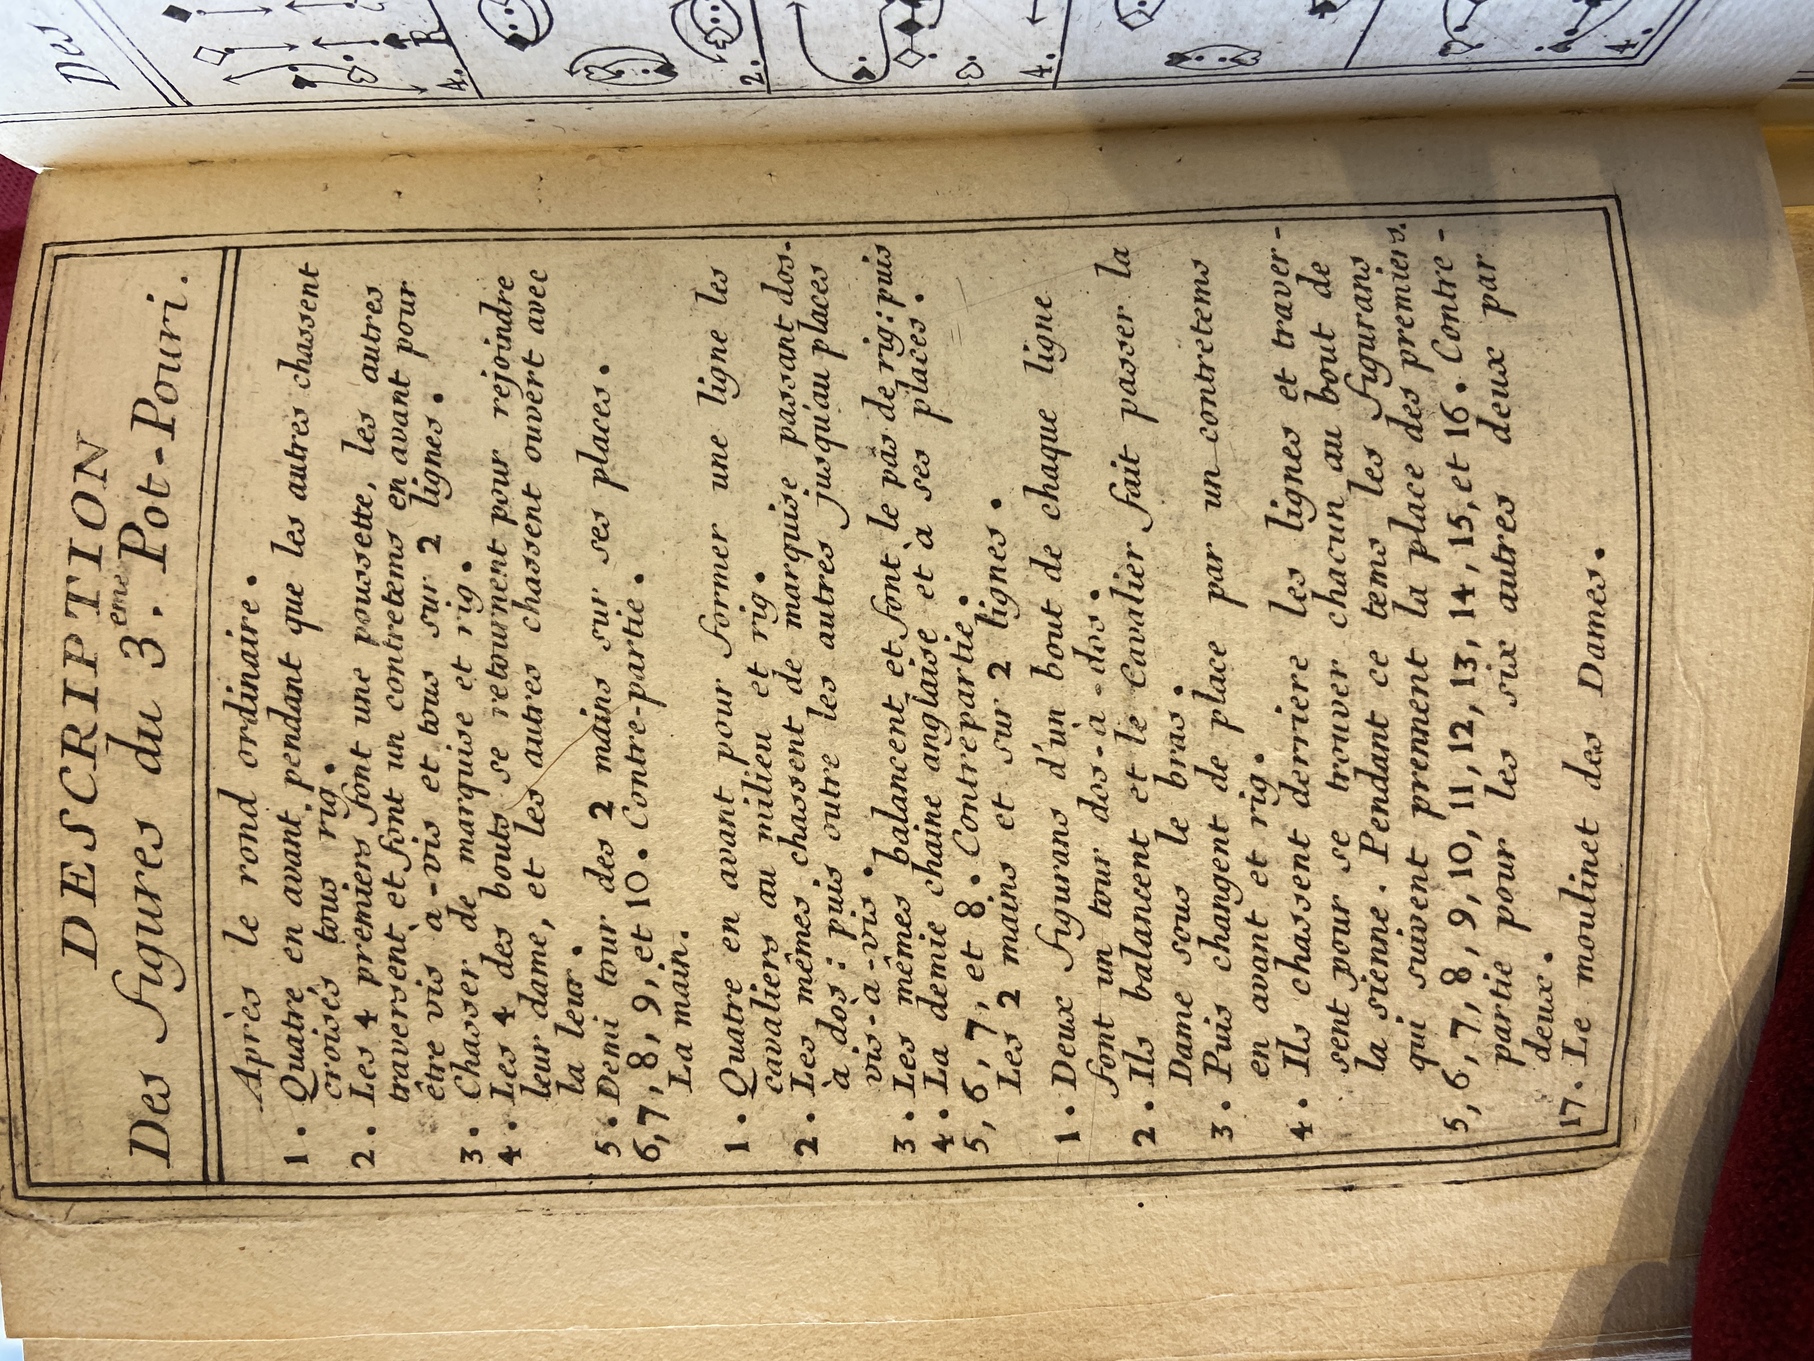 DESCRIPTION
Des figures du 3.ème Pot-Pouri.
Après le rond ordinaire.
1. Quatre en avant pendant que les autres chassent
croisés tous rig.
2. Les 4 premiers font une poussette, les autres
traversent et font un contretems en avant pour
être vis à-vis et tous sur 2 lignes.
3. Chasser de marquise et rig.
4. Les 4 des bouts se retournent pour rejoindre
leur dame, et les autres chassent ouvert avec
la leur.
5. Demi tour des 2 mains sur ses places.
6, 7, 8, 9, et 10. Contre-partie.
La main.
1. Quatre en avant pour former une ligne les
cavaliers au milieu et rig.
2. Les mêmes chassent de marquise passant dos-
à dos: puis outre les autres jusqu'au places
vis-à-vis.
3. Les mêmes balancent et font le pas de rig: puis
4. La demie chaine anglaise et à ses places.
5, 6, 7, et 8. Contrepartie.
Les 2 mains et sur 2 lignes.
1. Deux figurans d'un bout de chaque ligne
font un tour dos-à-dos.
2. Ils balancent et le Cavalier fait passer la
Dame sous le bras.
3. Puis changent de place par un contretems
en avant et rig.
4. Ils chassent derriere les lignes et traver-
sent pour se trouver chacun au bout de
la sienne. Pendant ce tems les figurans
qui suivent prennent la place des premiers.
5, 6, 7, 8, 9, 10, 11, 12, 13, 14, 15, et 16. Contre-
partie pour les six autres deux par
deux.
17. Le moulinet des Dames.
Des
4.
2.
4.
4.